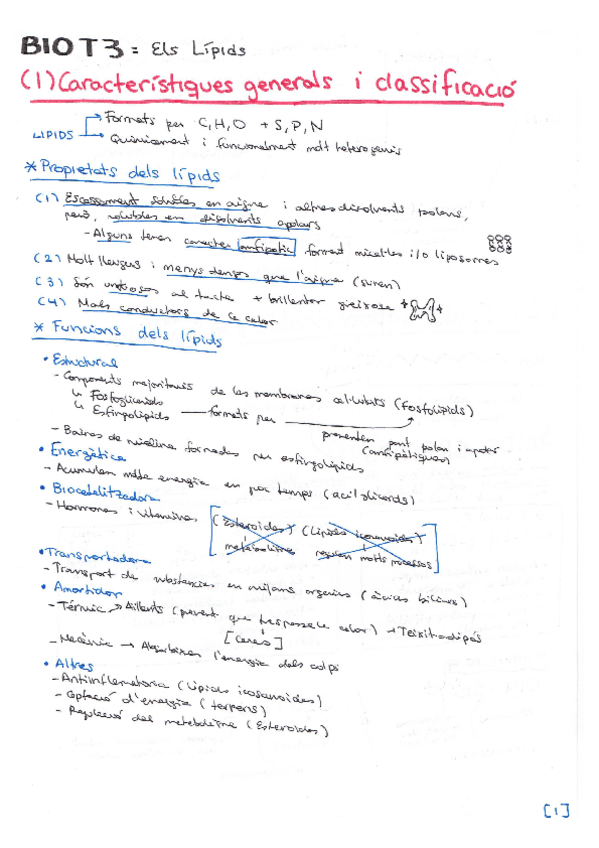 BIO T3: Els Lípids
(1) Característiques generals i classificació
Formats per C, H, O + S, P, N
LIPIDS
Químicament i funcionalment molt heterogenis
* Propietats dels lípids
(1) Escassament solubles en aigua i altres dissolvents polars,
però, solubles en dissolvents apolars
- Alguns tenen caràcter amfipàtic, formant micel·les i/o liposomes
(2) Molt lleugers i menys densos que l'aigua (suren)
(3) Són untuosos al tacte + brillantor greixosa
(4) Mals conductors de la calor
* Funcions dels lípids
• Estructural
- Components majoritaris de les membranes cel·lulars (Fosfolípids)
Fosfoglicèrids
Esfingolípids formats per
presenten part polar i apolar
(amfipàtiques)
- Baines de mielina formades per esfingolípids
• Energètica
- Acumulen molta energia en poc temps (acilglicèrids)
• Biocatalitzadora
- Hormones i vitamines (Esteroides) (Lípids icosanoides)
metabolisme regulen molts processos
• Transportadora
- Transport de substàncies en mitjans orgànics (àcids biliars)
• Amortidor
- Tèrmic → Aïllants (prevent que traspasse la calor) → Teixit adipós
[Ceres]
- Mecànic → Absorbeixen l'energia dels colps
• Altres
- Antiinflamatòria (Lípids icosanoides)
- Captació d'energia (terpens)
- Regulació del metabolisme (Esteroides)
[1]